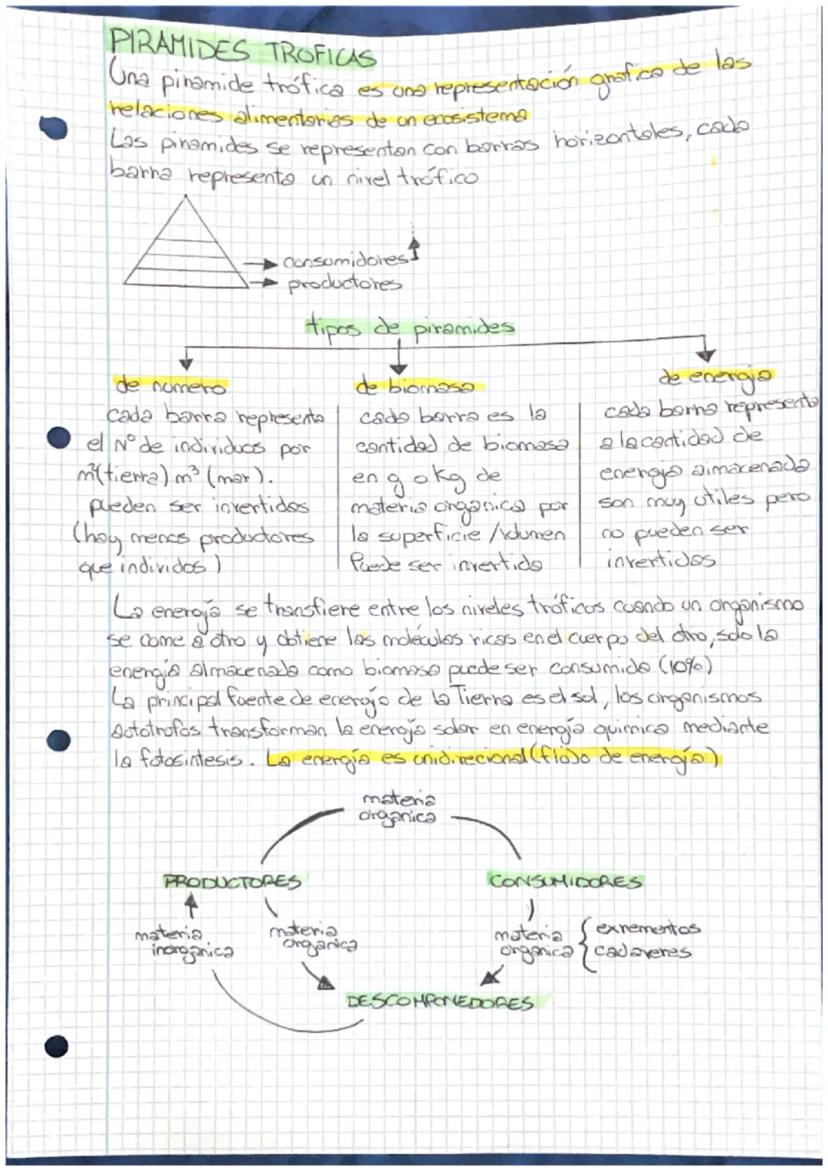 PIRAMIDES TROFICAS
Una piramide trófica es una representación grafica de las
relaciones alimentarias de un ecosistema
Las piramides se representan con barras horizontales, cada
barra representa un nivel trófico
consumidores
productores
tipos de piramides
de numero
cada barra representa
el Nº de individuos por
m²(tierra) m³ (mar).
pueden ser invertidas
(hay menos productores
que individos)
de biomasa
cada barra es la
cantidad de biomasa
en g o kg de
materia organica por
la superficie/volumen
Puede ser invertida
de energia
cada barra representa
a la cantidad de
energia almacenada
son muy utiles pero
no pueden ser
invertidas
La energía se transfiere entre los niveles tróficos cuando un organismo
se come a otro y obtiene las moléculas ricas en el cuerpo del otro, solo la
energía almacenada como biomasa puede ser consumida (10%)
La principal fuente de energía de la Tierra es el sol, los organismos
autotrofos transforman la energía solar en energía quimica mediante
la fotosintesis. La energía es unidirecional (flujo de energía)
materia
organica
PRODUCTORES
CONSUMIDORES
materia
inorganica
materia
organica
materia
organica
exrementos
cadaveres
DESCOMPONEDORES